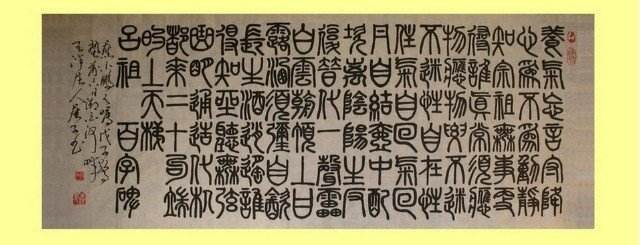 養氣忘言守降
心為不為動靜
知宗祖無事更
尋誰真常須應
物應物要不迷
不迷性自住性
住氣自回氣回
丹自結壺中配
坎離陰陽生反
復普化一聲雷
白雲朝頂上甘
露灑須彌自飲
長生酒逍遙誰
得知坐聽無弦
曲明通造化機
都來二十句端
的上天梯
呂祖 百字碑